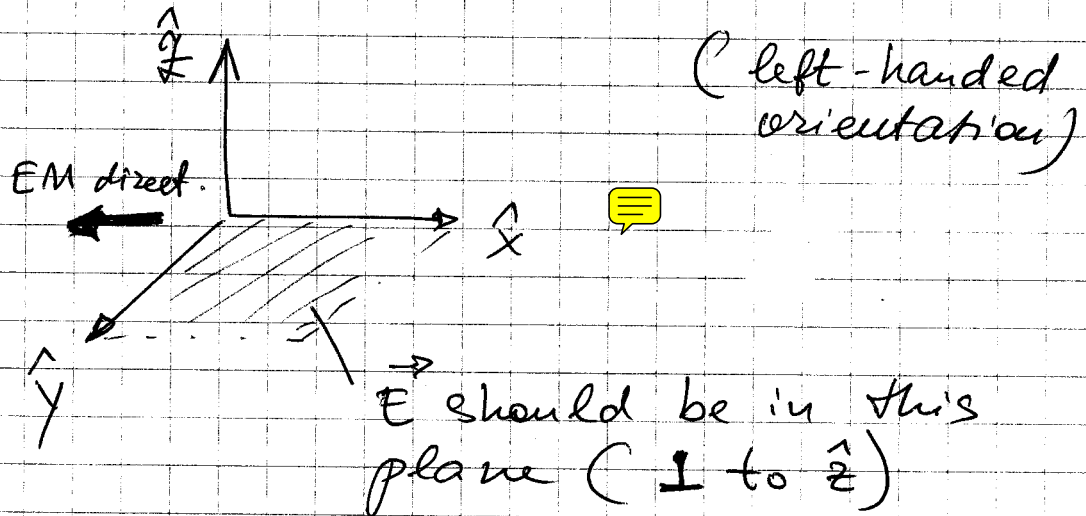 ẑ
(left-handed
orientation)
EM direct.
x̂
ŷ
E⃗ should be in this
plane (⊥ to ẑ)